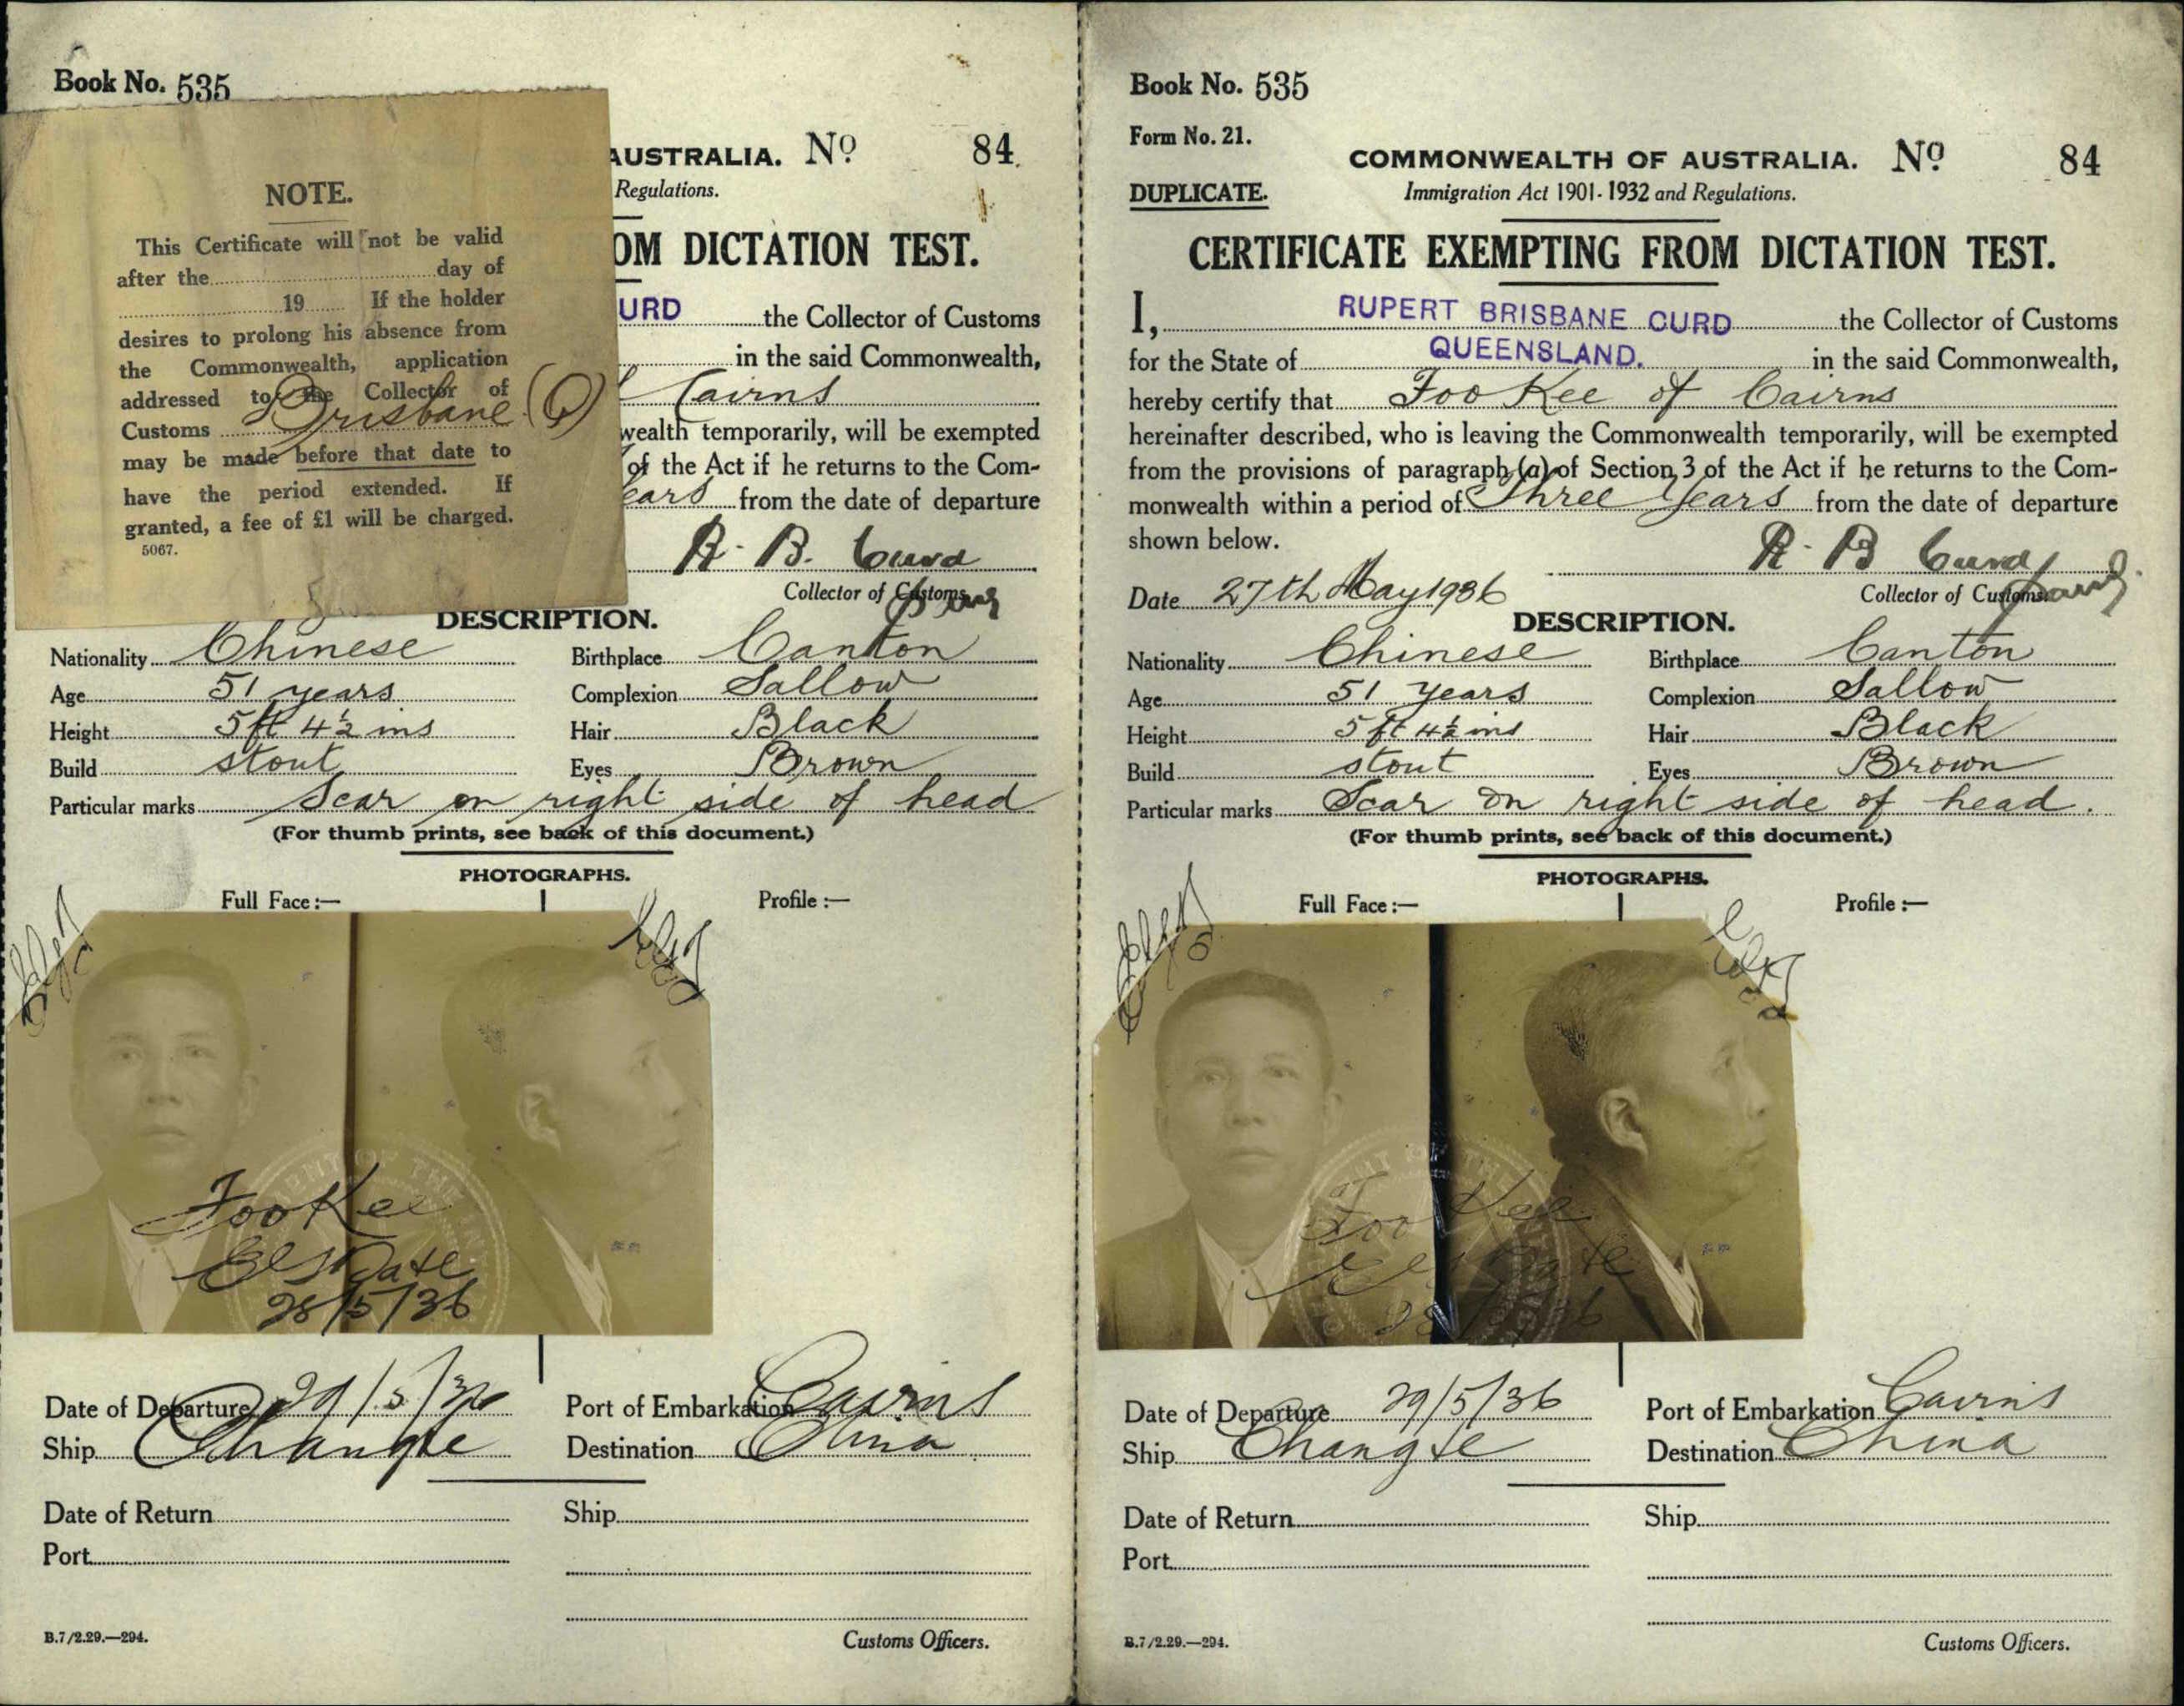 Book No. 535
NOTE.
This Certificate will not be valid
after the day of
19 If the holder
desires to prolong his absence from
the Commonwealth, application
addressed to the Collector of
Customs Brisbane (Q)
may be made before that date to
have the period extended. If
granted, a fee of £1 will be charged.
5067.
AUSTRALIA. No 84
Regulations.
OM DICTATION TEST.
URD the Collector of Customs
in the said Commonwealth,
Cairns
wealth temporarily, will be exempted
of the Act if he returns to the Com-
ears from the date of departure
R. B. Curd
Collector of Customs
DESCRIPTION.
Nationality Chinese Birthplace Canton
Age 51 years Complexion Sallow
Height 5 ft 4½ ins Hair Black
Build stout Eyes Brown
Particular marks Scar on right side of head
(For thumb prints, see back of this document.)
PHOTOGRAPHS.
Full Face :— Profile :—
Foo Kee
28/5/36
Date of Departure 29/5/36 Port of Embarkation Cairns
Ship Changte Destination China
Date of Return Ship
Port
B.7/2.29.—294. Customs Officers.
Book No. 535
Form No. 21.
COMMONWEALTH OF AUSTRALIA. No 84
DUPLICATE. Immigration Act 1901-1932 and Regulations.
CERTIFICATE EXEMPTING FROM DICTATION TEST.
I, RUPERT BRISBANE CURD the Collector of Customs
for the State of QUEENSLAND. in the said Commonwealth,
hereby certify that Foo Kee of Cairns
hereinafter described, who is leaving the Commonwealth temporarily, will be exempted
from the provisions of paragraph (a) of Section 3 of the Act if he returns to the Com-
monwealth within a period of Three Years from the date of departure
shown below.
R. B Curd
Date 27th May 1936 Collector of Customs.
DESCRIPTION.
Nationality Chinese Birthplace Canton
Age 51 years Complexion Sallow
Height 5 ft 4½ ins Hair Black
Build stout Eyes Brown
Particular marks Scar on right side of head.
(For thumb prints, see back of this document.)
PHOTOGRAPHS.
Full Face :— Profile :—
Foo Kee
28/5/36
Date of Departure 29/5/36 Port of Embarkation Cairns
Ship Changte Destination China
Date of Return Ship
Port
B.7/2.29.—294. Customs Officers.